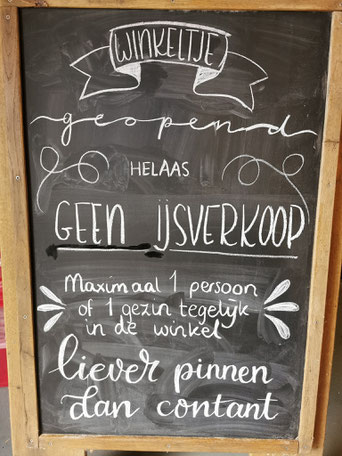 WINKELTJE
geopend
HELAAS
GEEN IJSVERKOOP
Maximaal 1 persoon
of 1 gezin tegelijk
in de winkel
liever pinnen
dan contant